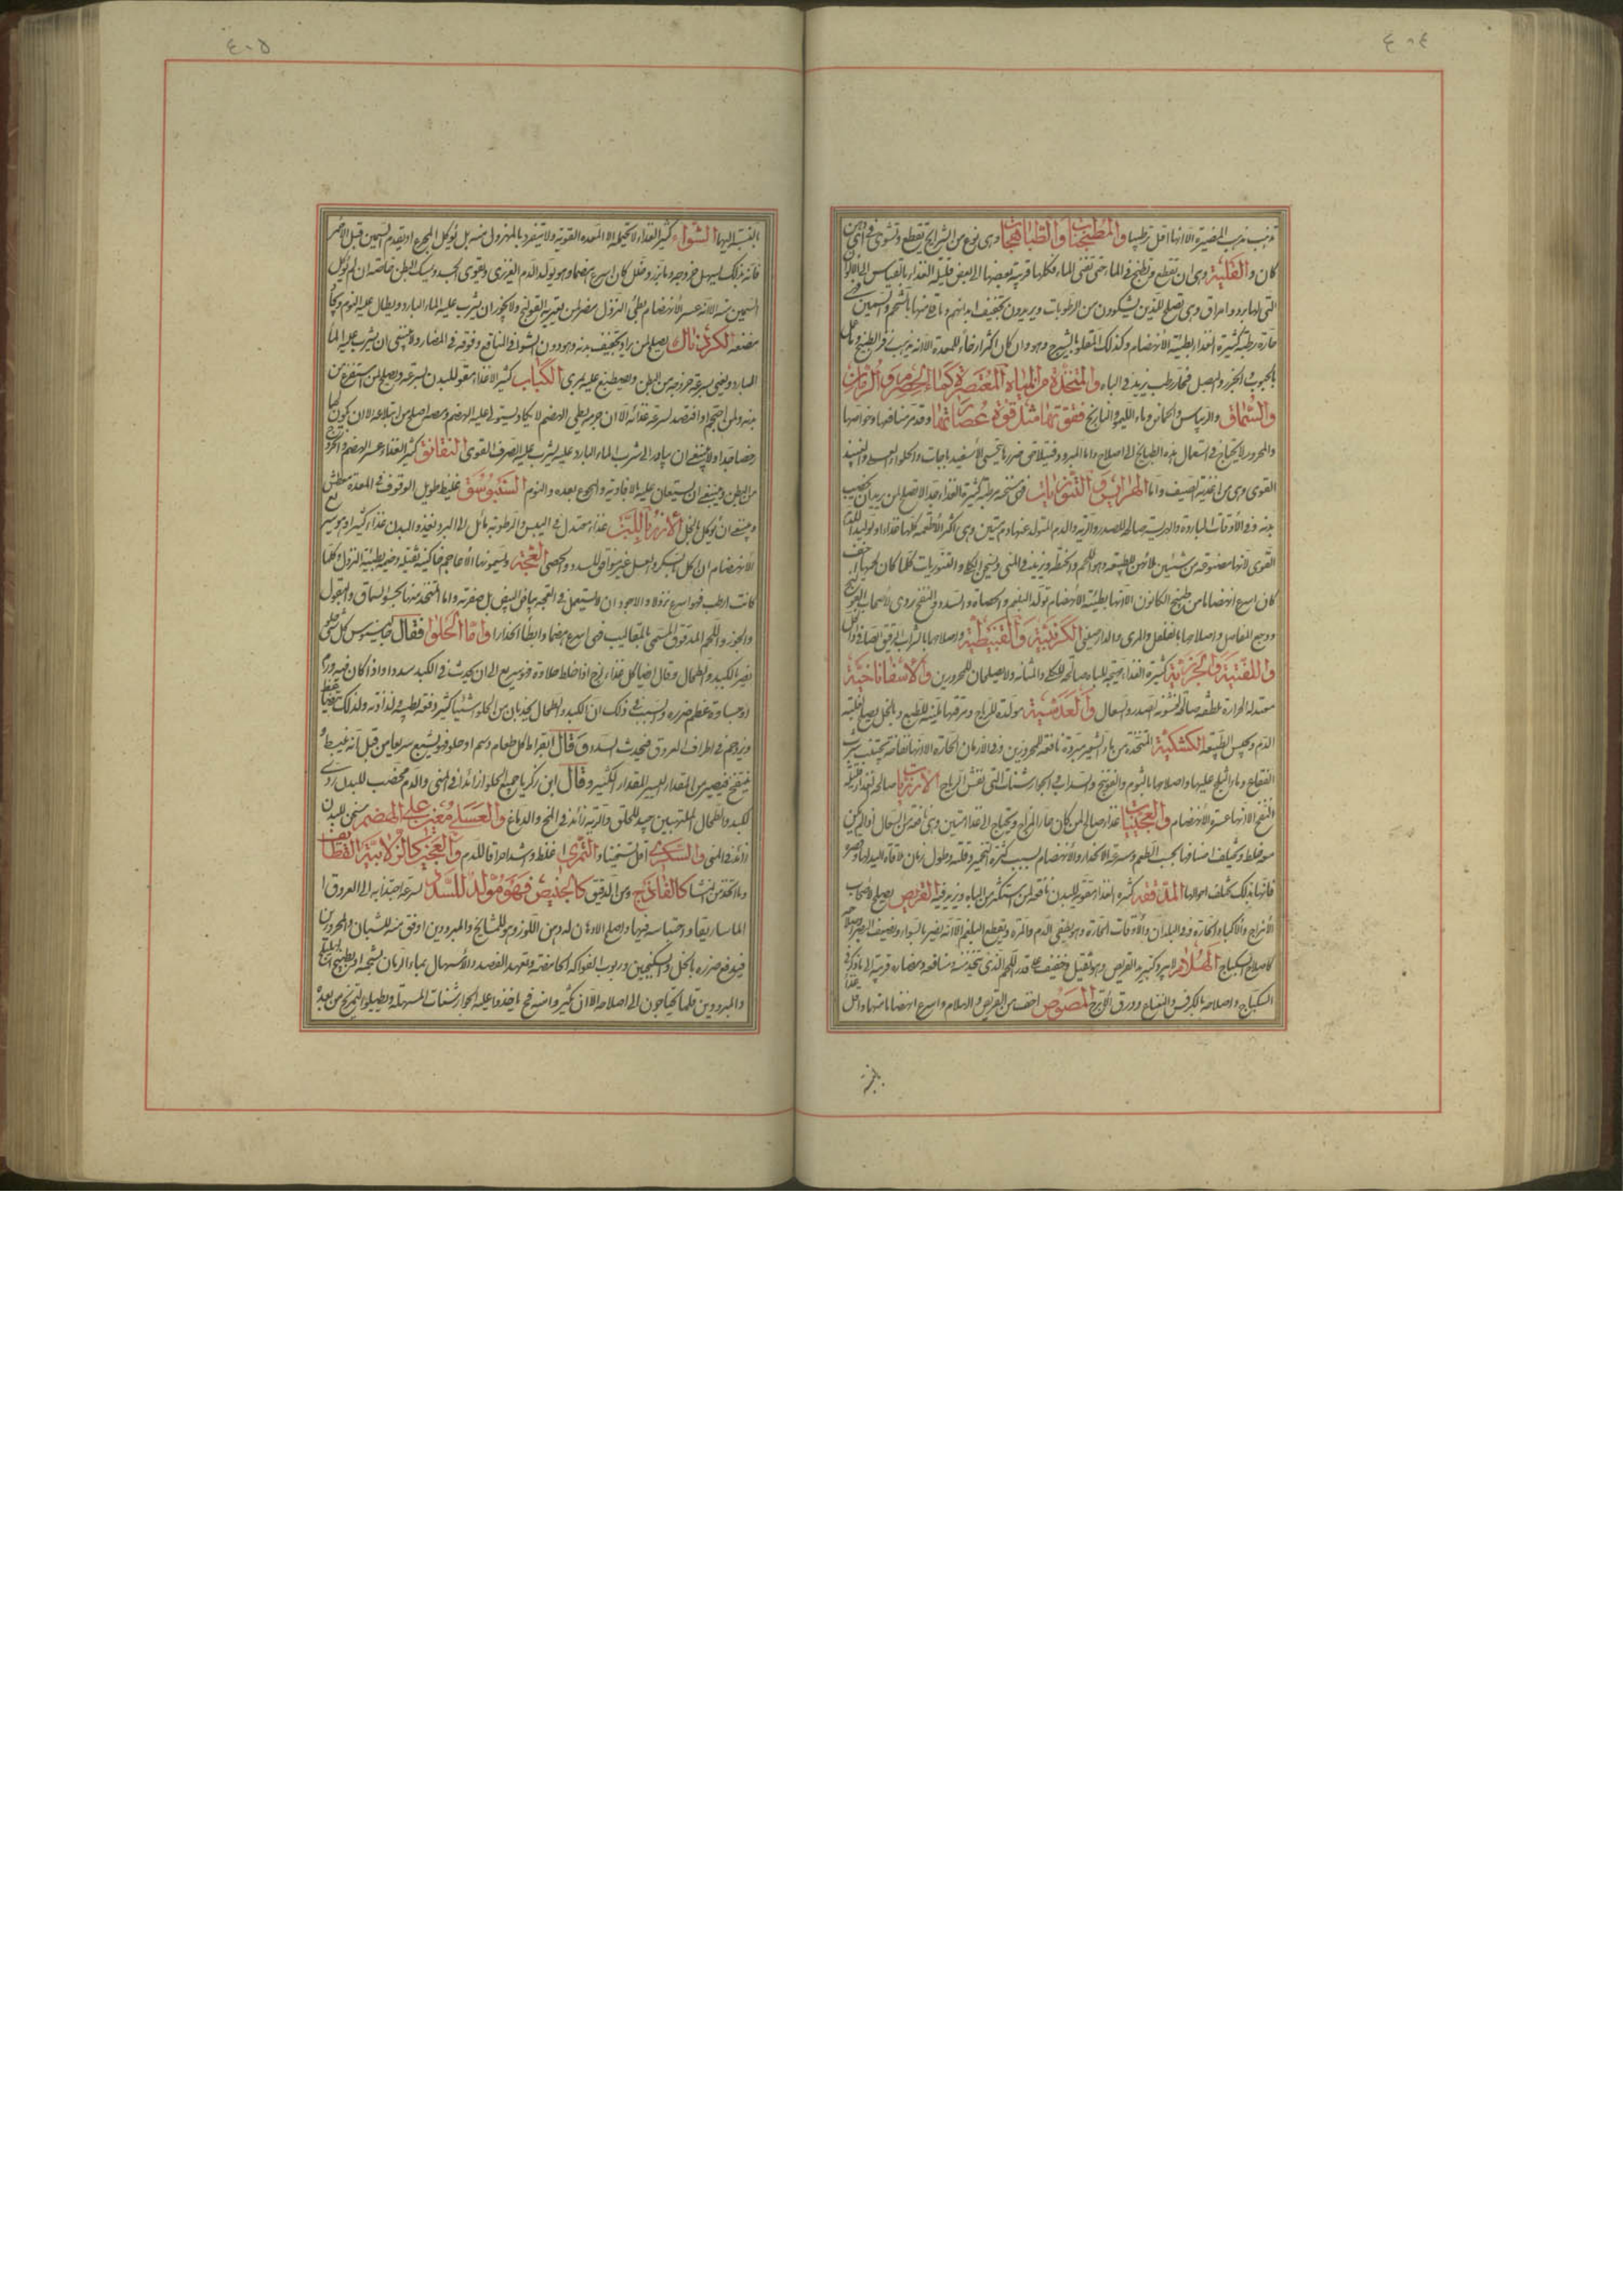 ٤٠٤
تذهب مذهب المضيرة الا انها اقل ترطيبا والمطجنات والطباهجات وهى نوع من الشرايح يقطع وتشوى فى اى دهن
كان والقلية وهى ان تقطع وتطبخ فى الماء حتى تفنى الماء فكلها قريبة بعضها الى بعض قليلة الغذاء بالقياس الى الالوان
التى لها برد وامراق وهى تصلح للذين يشكون من الرطوبات ويريدون تجفيف ابدانهم وما منها بالشحم والسمين
حارة رطبة كثيرة الغذاء بطيئة الانهضام وكذلك المقلو بالشيرج وهو وان كان اكثر ارخاء للمعدة الا انه يذهب
بالحبوب والجزر والبصل فحار رطب يزيد فى الباه والمتخذة من المياه المعتصرة كماء الحصرم والرمان
والسماق والريباس والحماض وماء الليمو والنارنج فقوتها مثل قوة عصاراتها وقد مر منافعها وخواصها
والمحرور لا يحتاج فى استعمال هذه الطبايخ الى اصلاح واما المبرود فيتلاحق ضررها بتحسى الاسفيدباجات والحلواء العسلى والنبيذ
القوى وهى من اغذية الصيف واما الهرايس والتنوريات فهى سخنة رطبة كثيرة الغذاء جدا لا تصلح لمن يريد ان يخصب
بدنه وفى الاوقات الباردة والهريسة صالحة للصدر والرية والدم المتولد عنها دم متين وهى اكثر الاطعمة كلها غذاء وتوليدا للدم
القوى لانها مصنوعة من شيئين ملائمين للطبيعة وهو اللحم والحنطة ويزيد فى المنى ويسخن الكلا والتنوريات كلما كان لحمها اخف
كان اسرع انهضاما من طبيخ الكانون الا انها بطيئة الانهضام تولد البلغم والحصاة والسدد والنفخ ردى لاصحاب القولنج
ووجع المفاصل واصلاحها بالفلفل والمرى والدارصينى الكرنبية والقنبيطية واصلاحها بالشراب الرقيق
واللفتية والجزرية كثيرة الغذاء مهيجة للباه صالحة للكلى والمثانة ولا يصلحان للمحرورين والاسفاناخية
معتدلة الحرارة ملطفة صالحة لخشونة الصدر والسعال والعدسية مولدة للرياح ومرقتها ملينة للطبع وبالخل يصلح لغلبة
الدم ويحبس الطبيعة الكشكية المتخذة من ماء الشعير مبردة نافعة للمحرورين وفى الازمان الحارة الا انها نفاخة تجتنب شرب
الفقاع وماء الثلج عليها واصلاحها بالثوم والفوتنج والسداب والجوارشنات التى تفش الرياح الارزيات صالحة الغذاء قليلة
النفخ الا انها عسرة الانهضام والعجينيات غذاء صالح لمن كان حار المزاج ويحتاج الى غذاء متين وهى نافعة من السعال
مولد خلط ويختلف اصنافها بحسب الطعم وسرعة الانحدار والانهضام بسبب كثرة التخمير وقلته وطول زمان ملاقاة اليد لها
فانها بذلك يختلف احوالها المدققه كثيرة الغذاء مقوية للبدن نافعة لمن استكثر من الباه ويزيد فيه القريص يصلح لاصحاب
الامزاج والاكباد الحارة وفى البلدان والاوقات الحارة وهو يطفى الدم والمرة ويقطع البلغم الا انه يضر بالسودا ويضعف البصر
كاصلاح السكباج الهلام ابرد كثيرا من القريص وهو ثقيل وخفيف على قدر اللحم الذى يتخذ منه ومنافعه ومضاره قريبة الى ما ذكر فى
السكباج واصلاحه بالكرفس والنعناع وورق الاترج المصوص اخف من القريص والهلام واسرع انهضاما منها واقل
٤٠٥
بالنسبة اليها الشواء كثير الغذاء لا يحتمله الا المعدة القوية ولا ينفرد بالمهزول منه بل يؤكل المجزع او يقدم السمين قبل الاحمر
فانه بذلك يسهل خروجه وما بزر وخلل كان اسرع هضما وهو يولد الدم الغزير ويقوى الجسد ويمسك البطن خاصة ان لم يؤكل
السمين منه الا انه عسر الانهضام بطى النزول مضر لمن يعتريه القولنج ولا يجوز ان يشرب عليه الماء البارد ويطال عليه النوم ويجاد
مضغه الكردناك يصلح لمن اراد تجفيف بدنه وهو دون الشواء فى النافع وفوقه فى المضار ولا ينبغى ان يشرب عليه الماء
البارد ويعنى بسرعة خروجه من البطن ويصطبغ عليه بالمرى الكباب كثير الاغذاء مقو للبدن بسرعة ويصلح لمن استفرغ من
بدنه دم من احتجم او افتصد لسرعة غذائه الا ان جرمه بطى الهضم لا يكاد يستولى عليه الهضم ومصه اصلح من ابتلاعه الا ان يكون لحما
رخصا جدا ولا ينبغى ان يبادر الى شرب الماء البارد عليه بل يشرب عليه الصرف القوى النقانق كثير الغذاء عسر الهضم والخروج
من البطن وينبغى ان يستعان عليه بالافاويه والجوع بعده والنوم السنبوسق غليظ طويل الوقوف فى المعدة معطش
وينبغى ان يؤكل بالخل الارز باللبن غذاء معتدل فى اليبس والرطوبة مائل الى البرد يغذو البدن غذاء كثيرا وهو سريع
الانهضام ان اكل بالسكر والعسل غير موافق للسدد والحصى العجة ويسمونها الاعاجم خاكينه ثقيلة وخيمة بطيئة النزول وكلما
كانت ارطب فهو اسرع نزولا والاجود ان لا يستعمل فى العجة بياض البيض بل صفرته واما المتخذ منها بحب السماق والبقول
والجزر واللحم المدقوق المسمى بالمقاليب فهى اسرع هضما وابطأ انحدارا واما الحلوا فقال جالينوس كل شئ حلو
يضر بالكبد والطحال وقال ايضا كل غذاء لزج اذا خالطه حلاوة فهو سريع الى ان يحدث فى الكبد سددا واذا كان فيه ورم
او جساوة عظم ضرره والسبب فى ذلك ان الكبد والطحال يجذبان من الحلو اشياء كثيرة دفعة لطيبه ولذاذته ولذلك
ويزدحم فى اطراف العروق فيحدث السدد وقال ابقراط كل طعام دسم او حلو فهو يشبع سريعا من قبل انه ينبسط و
ينتفخ فيصير من المقدار اليسير للمقدار الكثير وقال ابن زكريا جميع الحلو زائد فى المنى والدم مخصب للبدن ردى
للكبد والطحال الملتهبين جيد للحلق والرية زائد فى المخ والدماغ والعسلى معين على الهضم مسخن للبدن
زائد فى المنى والسكرى اقل تسخينا والتمرى اغلظ واشد احراقا للدم والعجين كالزلابية القطايف
وما اتخذ من النشا كالفالوذج ومن الدقيق كالخبيص فهو مولد للسدد لسرعة اجتذابه الى العروق
الماساريقا واحتباسه فيها واصلح الادهان له دهن اللوز وهو للمشايخ والمبرودين اوفق منه للشبان والمحرورين
فيدفع ضرره بالخل والسكنجبين وربوب الفواكه الحامضة وتعهد الفصد والاسهال بماء الرمان بشحمه او بطبيخ الهليلج
والمبرودين قلما يحتاجون الى اصلاحه الا ان يكثروا منه فحينئذ ياخذوا عليه الجوارشنات المسهلة ويطيلوا التمريخ من بعده
بالنسبة